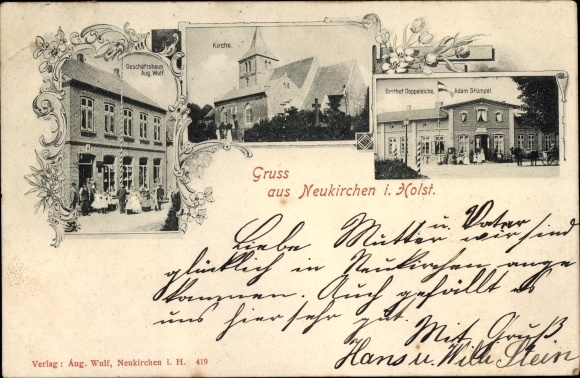 Geschäftshaus
Aug. Wulf.
Kirche.
Gasthof Doppeleiche, Adam Stümpel.
Gruss
aus Neukirchen i. Holst.
Liebe Mutter u. Vater
wir sind
glücklich in Neukirchen ange
kommen. Auch gefällt es
uns hier sehr gut.
Mit Gruß
Hans u. Willi Stein
Verlag: Aug. Wulf, Neukirchen i. H. 419